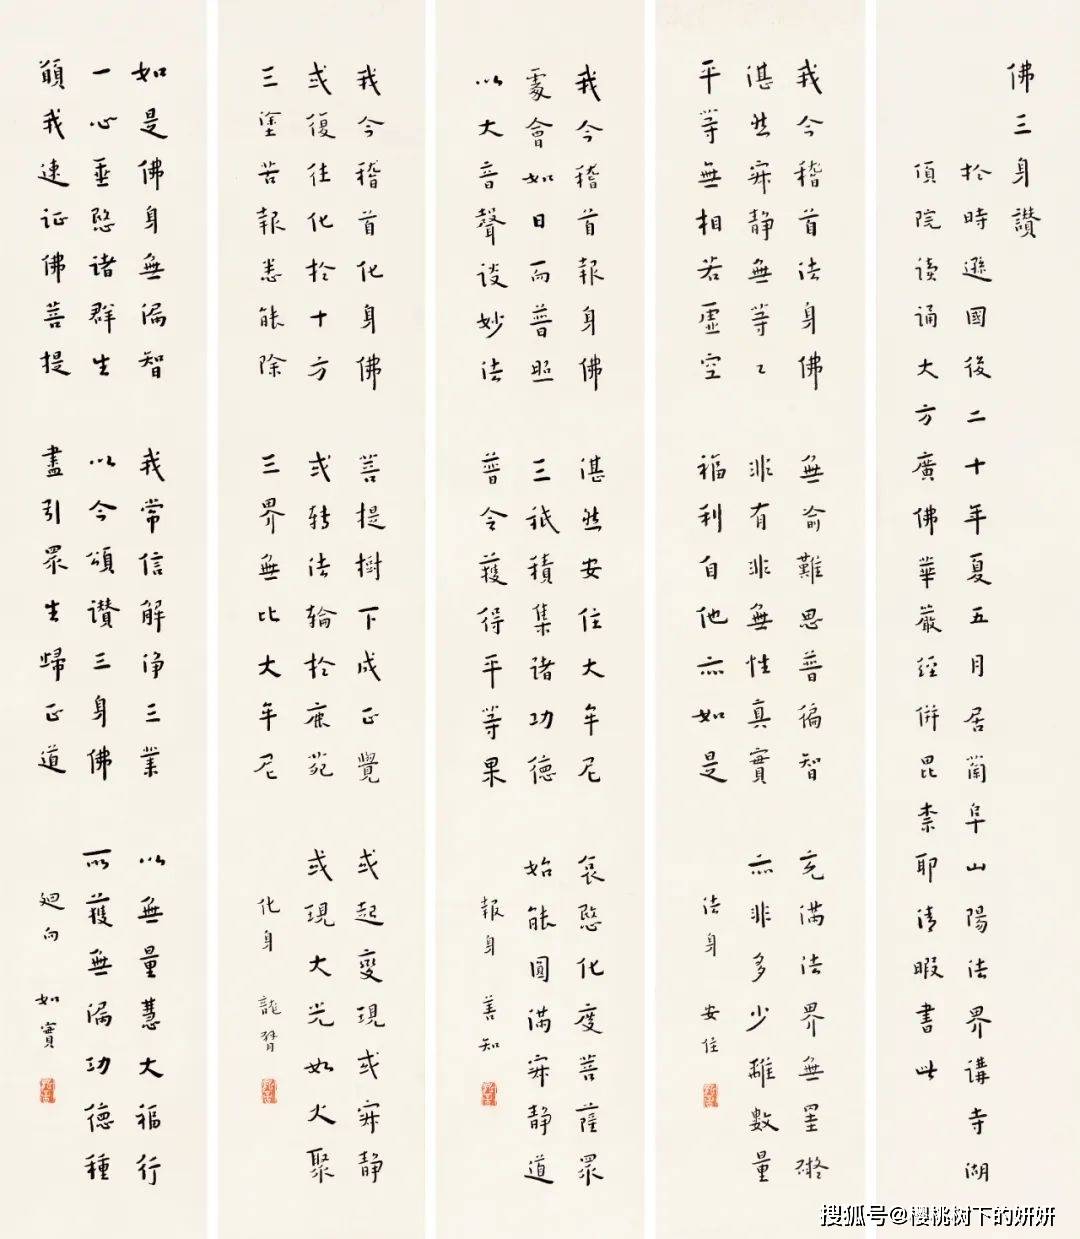 佛三身讚
於時遜國後二十年夏五月居蘭阜山陽法界講寺湖
頂院读诵大方廣佛華嚴經併毘柰耶清暇書此
我今稽首法身佛 無喻難思普徧智 充满法界無罣礙
湛然寂静無等々 非有非無性真實 亦非多少離數量
平等無相若虛空 福利自他亦如是 法身 安住
我今稽首報身佛 湛然安住大牟尼 哀愍化度菩薩眾
處會如日而普照 三祇積集诸功德 始能圓满寂静道
以大音聲談妙法 普令獲得平等果 報身 善知
我今稽首化身佛 菩提樹下成正覺 或起變現或寂静
或復往化於十方 或转法輪於鹿苑 或現大光如火聚
三塗苦報悉能除 三界無比大牟尼 化身 龍習
如是佛身無漏智 我常信解净三業 以無量慧大福行
一心垂愍诸群生 以今頌讚三身佛 所獲無漏功德種
願我速证佛菩提 盡引眾生歸正道 迴向 如實
搜狐号@樱桃树下的妍妍